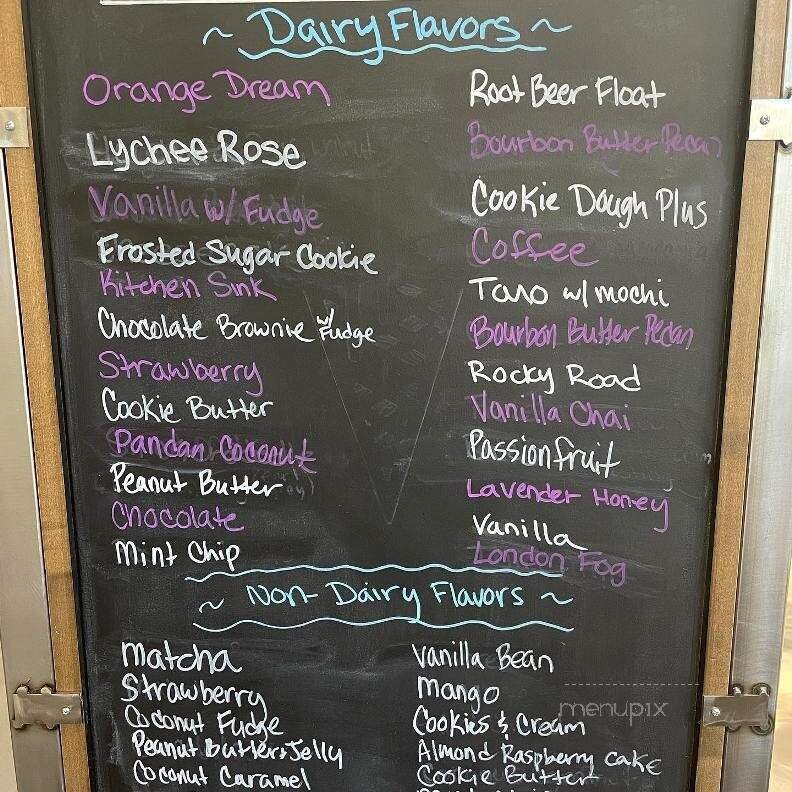 ~ Dairy Flavors ~
Orange Dream
Lychee Rose
Vanilla w/ Fudge
Frosted Sugar Cookie
Kitchen Sink
Chocolate Brownie w/ Fudge
Strawberry
Cookie Butter
Pandan Coconut
Peanut Butter
Chocolate
Mint Chip
Root Beer Float
Bourbon Butter Pecan
Cookie Dough Plus
Coffee
Taro w/ mochi
Bourbon Butter Pecan
Rocky Road
Vanilla Chai
Passionfruit
Lavender Honey
Vanilla
London Fog
~ Non-Dairy Flavors ~
Matcha
Strawberry
Coconut Fudge
Peanut Butter & Jelly
Coconut Caramel
Vanilla Bean
Mango
Cookies & Cream
Almond Raspberry Cake
Cookie Butter
menupix